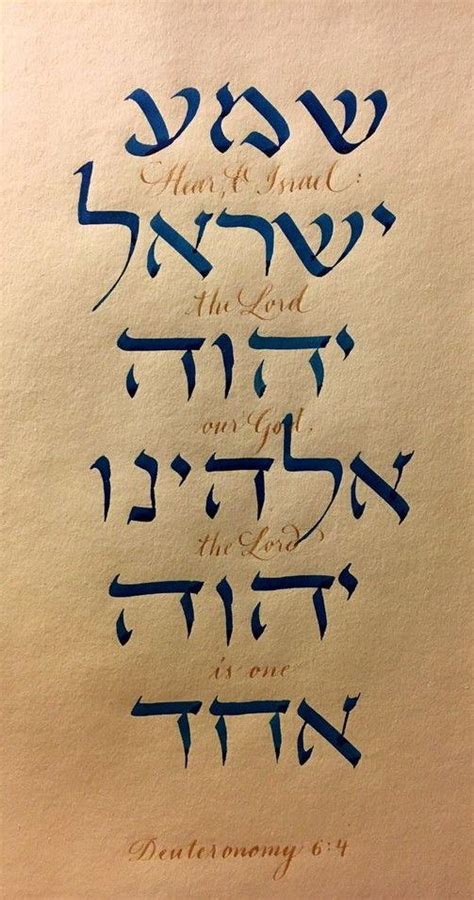 שמע
Hear, O Israel:
ישראל
the Lord
יהוה
our God,
אלהינו
the Lord
יהוה
is one
אחד
Deuteronomy 6:4